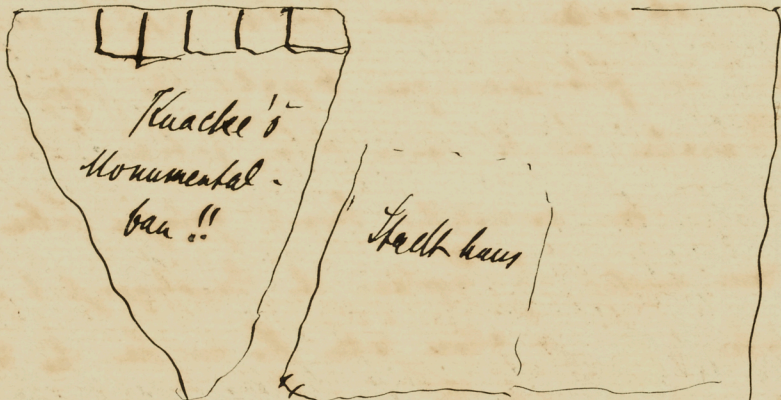 Knacke's
Monumental-
bau!!
Stadthaus